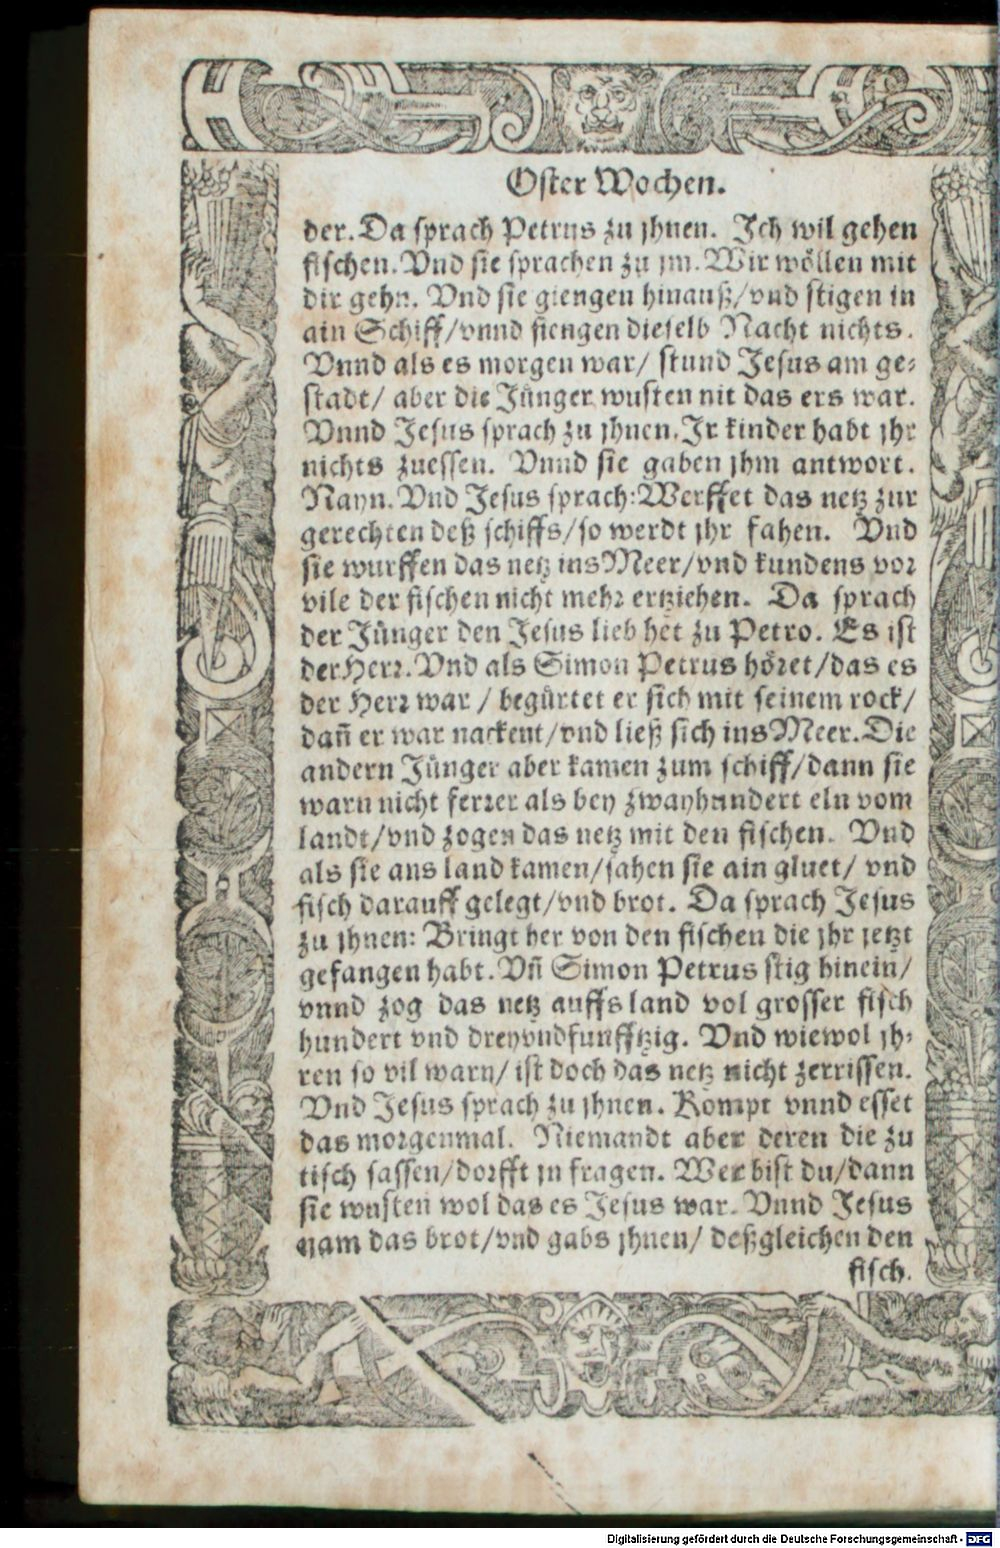 Oster Wochen.
der. Da sprach Petrus zu jhnen. Ich wil gehen
fischen. Vnd sie sprachen zu jm. Wir wöllen mit
dir gehn. Vnd sie giengen hinauß/vnd stigen in
ain Schiff/vnnd fiengen dieselb Nacht nichts.
Vnnd als es morgen war/ stund Jesus am ge-
stadt/ aber die Jünger wusten nit das ers war.
Vnnd Jesus sprach zu jhnen. Ir kinder habt jhr
nichts zuessen. Vnnd sie gaben jhm antwort.
Nayn. Vnd Jesus sprach: Werffet das netz zur
gerechten deß schiffs/so werdt jhr fahen. Vnd
sie wurffen das netz ins Meer/vnd kundens vor
vile der fischen nicht mehr ertziehen. Da sprach
der Jünger den Jesus lieb het zu Petro. Es ist
der Herr. Vnd als Simon Petrus höret/das es
der Herr war / begürtet er sich mit seinem rock/
dañ er war nackent/vnd ließ sich ins Meer. Die
andern Jünger aber kamen zum schiff/dann sie
warn nicht ferrer als bey zwayhundert eln vom
landt/vnd zogen das netz mit den fischen. Vnd
als sie ans land kamen/sahen sie ain gluet/ vnd
fisch darauff gelegt/vnd brot. Da sprach Jesus
zu jhnen: Bringt her von den fischen die jhr jetzt
gefangen habt. Vñ Simon Petrus stig hinein/
vnnd zog das netz auffs land vol grosser fisch
hundert vnd dreyvndfunfftzig. Vnd wiewol jh-
ren so vil warn/ ist doch das netz nicht zerrissen.
Vnd Jesus sprach zu jhnen. Kompt vnnd esset
das morgenmal. Niemandt aber deren die zu
tisch sassen/dorfft jn fragen. Wer bist du/dann
sie wusten wol das es Jesus war. Vnnd Jesus
nam das brot/vnd gabs jhnen/ deßgleichen den
fisch.
Digitalisierung gefördert durch die Deutsche Forschungsgemeinschaft - DFG